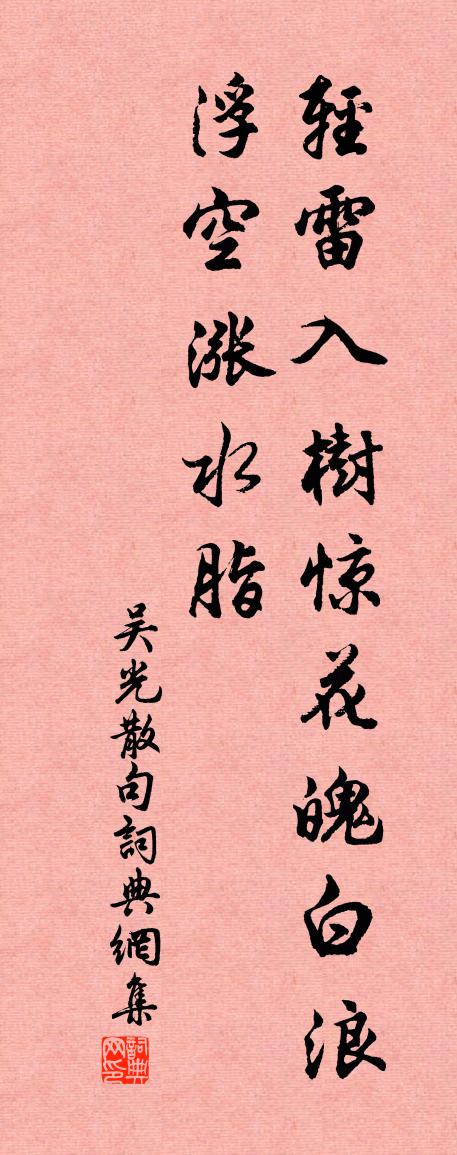 輕雷入樹惊花魄白浪
浮空漲水脂
吴光散句詞典網集
詞典网印